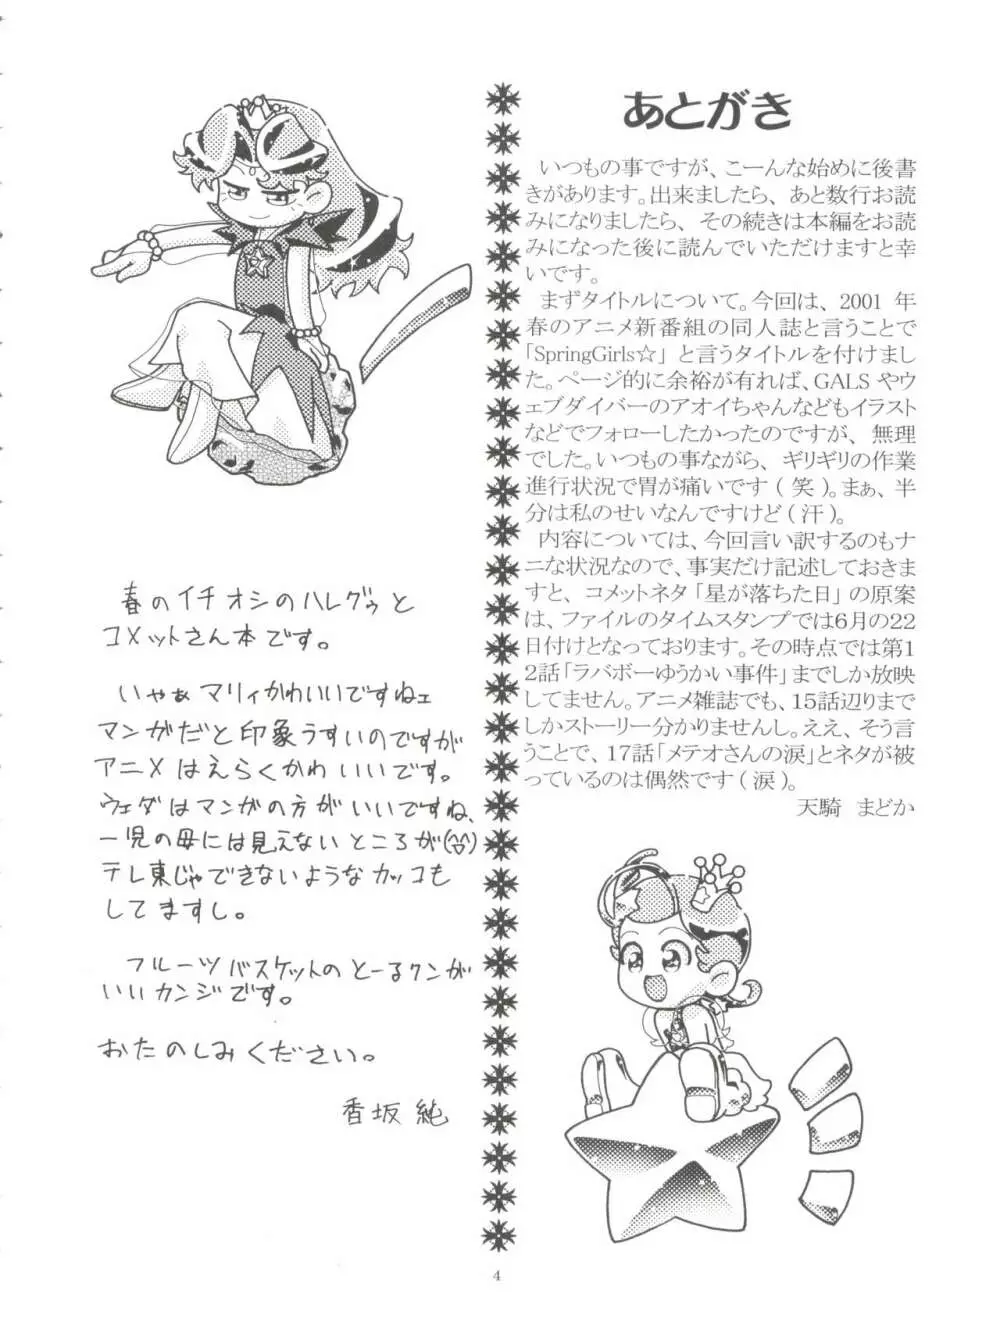 あとがき
いつもの事ですが、こーんな始めに後書
きがあります。出来ましたら、あと数行お読
みになりましたら、その続きは本編をお読
みになった後に読んでいただけますと幸
いです。
まずタイトルについて。今回は、2001 年
春のアニメ新番組の同人誌と言うことで
「SpringGirls☆」と言うタイトルを付けまし
た。ページ的に余裕が有れば、GALS やウ
ェブダイバーのアオイちゃんなどもイラスト
などでフォローしたかったのですが、無理
でした。いつもの事ながら、ギリギリの作業
進行状況で胃が痛いです(笑)。まぁ、半
分は私のせいなんですけど(汗)。
内容については、今回言い訳するのもナ
ニな状況なので、事実だけ記述しておきま
すと、コメットネタ「星が落ちた日」の原案
は、ファイルのタイムスタンプでは6月の22
日付けとなっております。その時点では第1
2話「ラバボーゆうかい事件」までしか放映
してません。アニメ雑誌でも、15話辺りまで
しかストーリー分かりませんし。ええ、そう言
うことで、17話「メテオさんの涙」とネタが被
っているのは偶然です(涙)。
天騎 まどか
春のイチオシのハレグゥと
コメットさん本です。
いやぁマリィかわいいですねェ
マンガだと印象うすいのですが
アニメはえらくかわいいです。
ウェダはマンガの方がいいですね、
一児の母には見えないところが
テレ東じゃできないようなカッコも
してますし。
フルーツバスケットのとーるクンが
いいカンジです。
おたのしみください。
香坂純
4